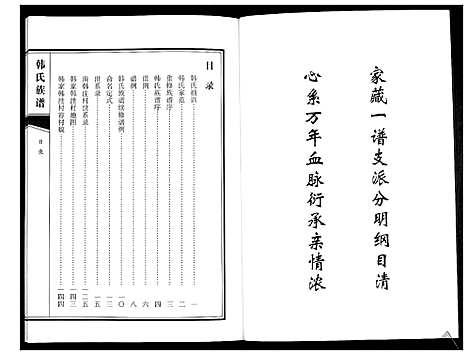 家藏一谱支派分明纲目清
心系万年血脉衍承亲情浓
目录
韩氏祖训……一
韩氏家范……二
重修族谱序……三
韩氏族谱序……四
谱图……六
谱例……八
韩氏族谱续修谱例……一〇
命名定式……一三
世系录……一五
南韩洼村世系录……一二五
韩家韩洼村地图……一四三
韩家韩洼村容村貌……一四四
韩氏族谱
目录